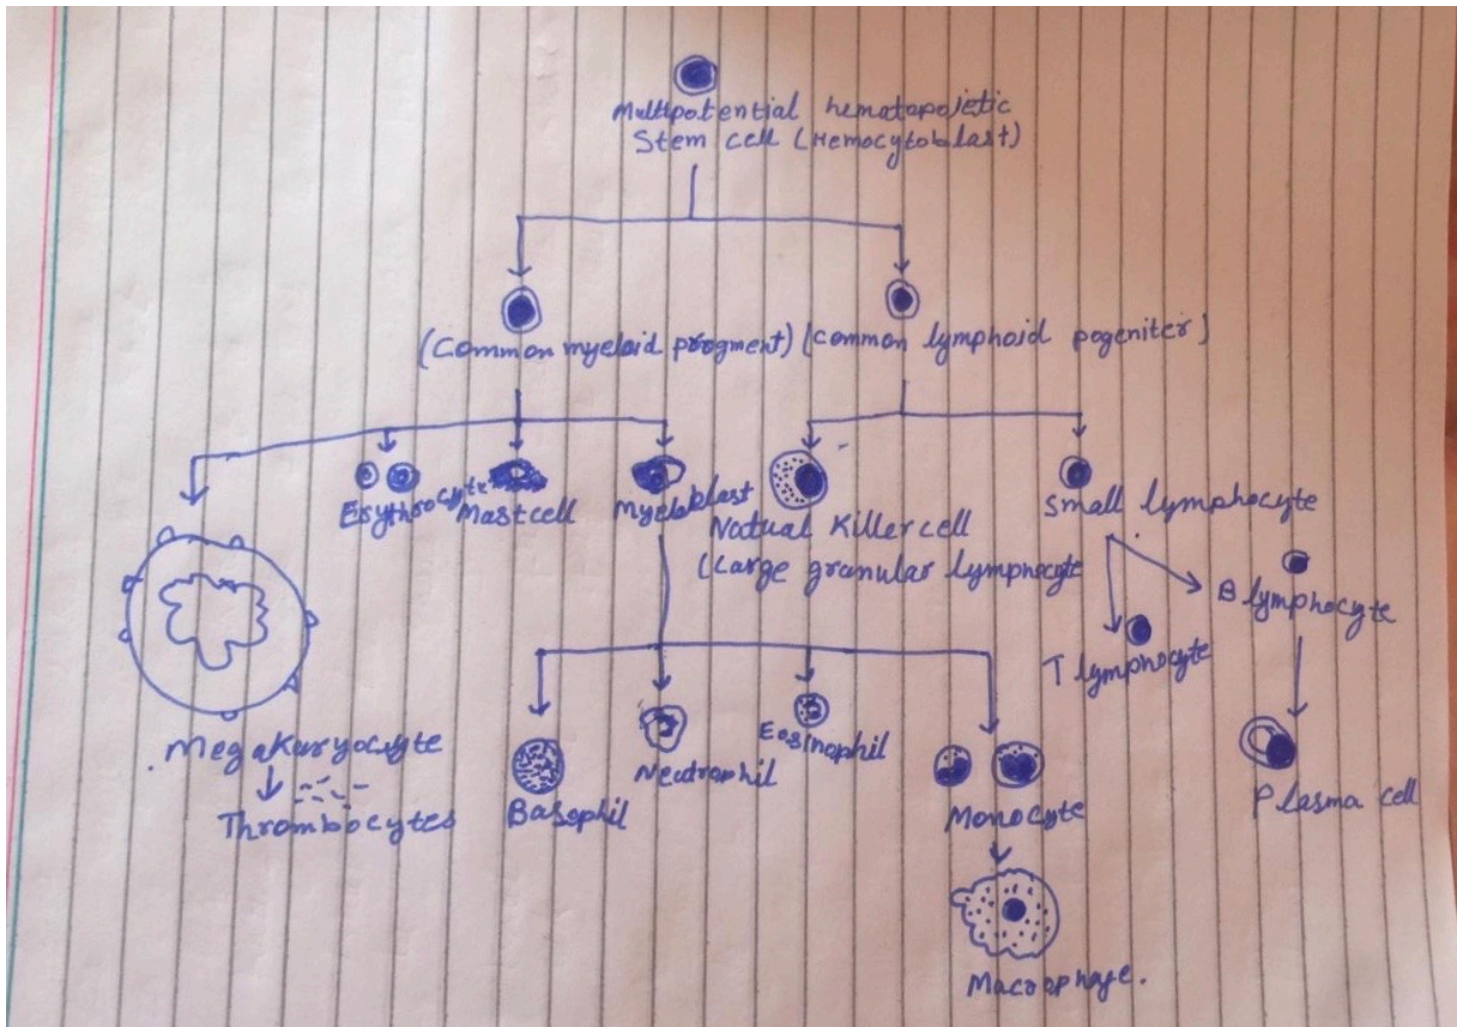 Multipotential hematopoietic
Stem cell (Hemocytoblast)
(Common myeloid progment)
(Common lymphoid pogeniter)
Erythrocyte
Mast cell
Myeloblast
Natual Killer cell
(Large granular lymphocyte
Small lymphocyte
B lymphocyte
T lymphocyte
Megakaryocyte
Thrombocytes
Basophil
Neutrophil
Eosinophil
Monocyte
Plasma cell
Macrophage.